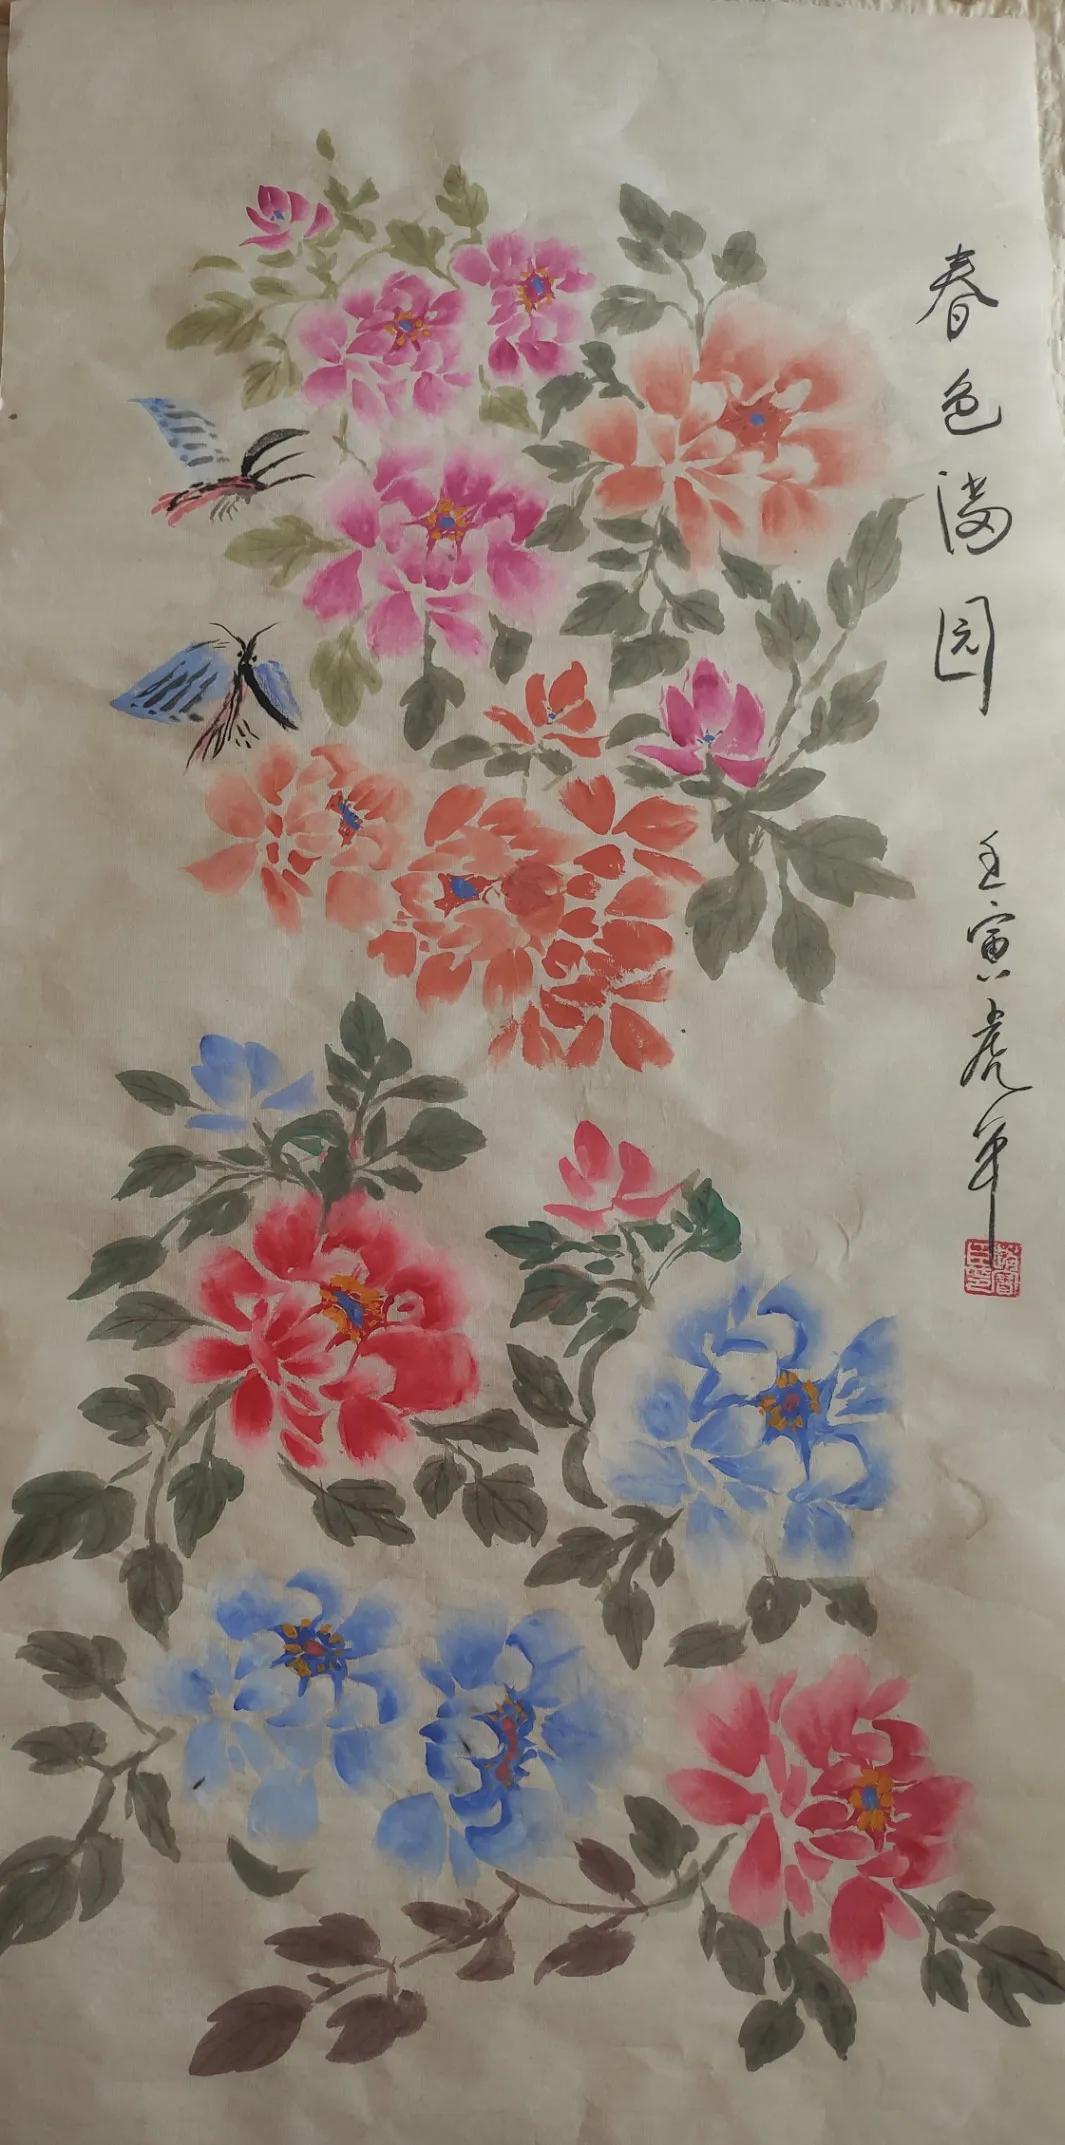 春色满园
壬寅虎年